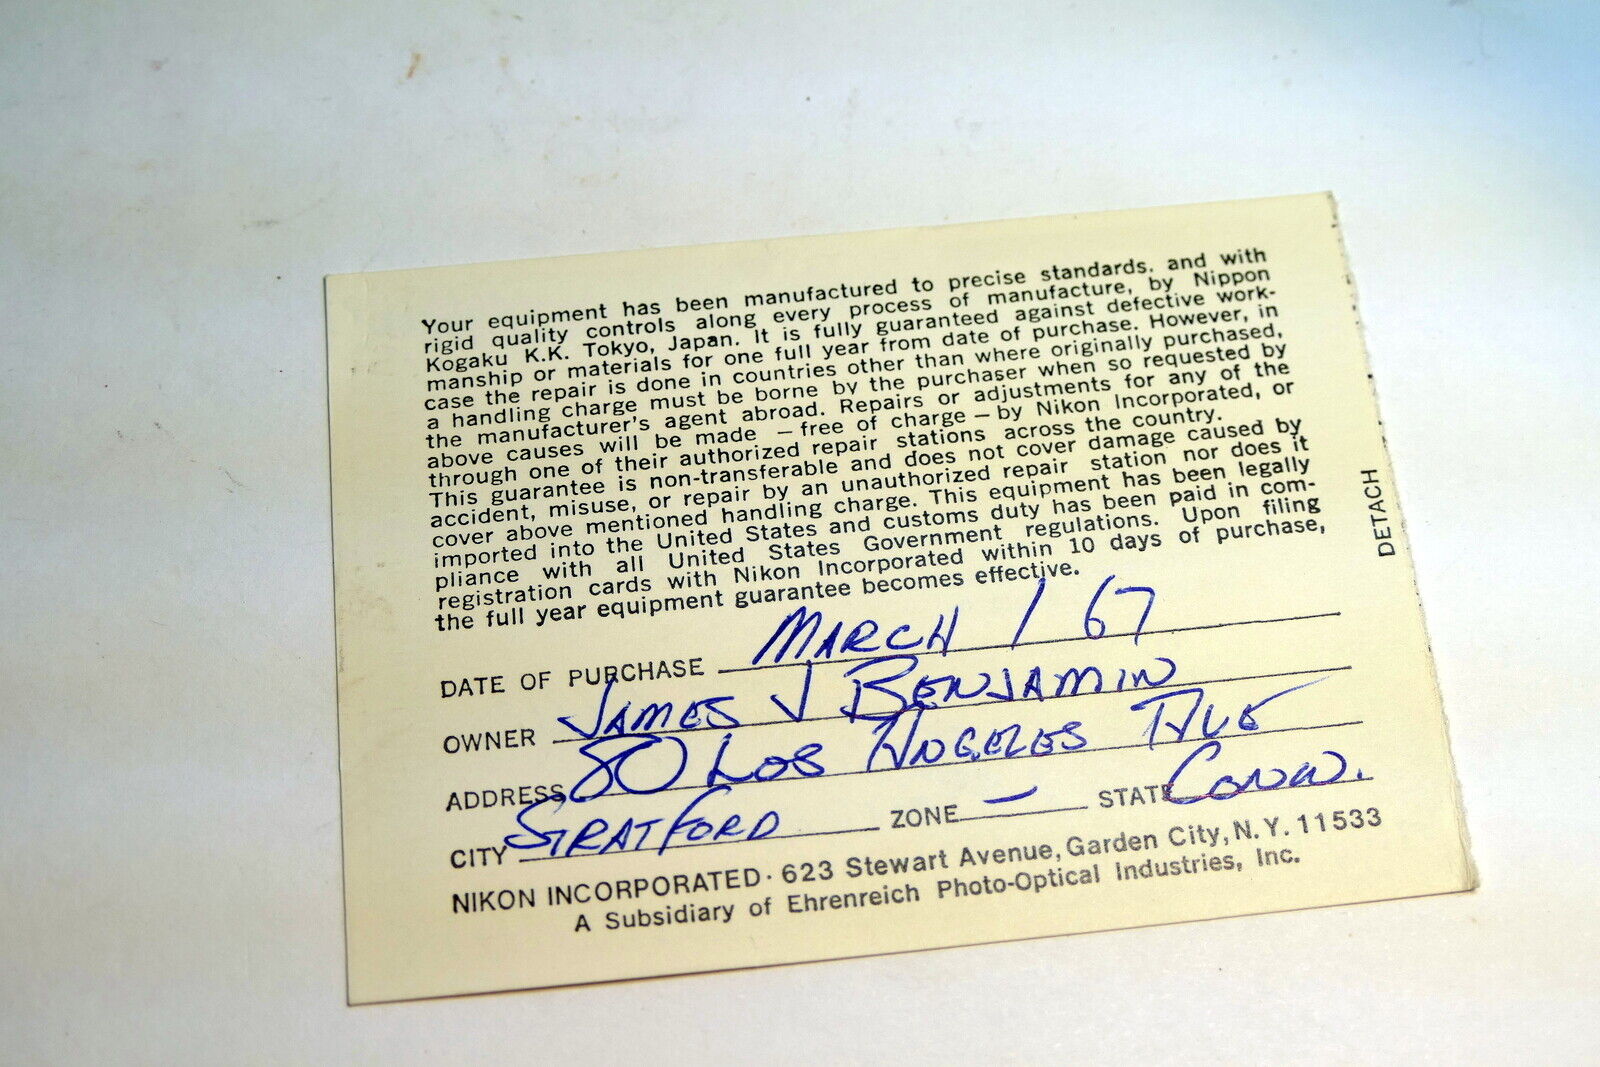 Your equipment has been manufactured to precise standards, and with
rigid quality controls along every process of manufacture, by Nippon
Kogaku K.K. Tokyo, Japan. It is fully guaranteed against defective work-
manship or materials for one full year from date of purchase. However, in
case the repair is done in countries other than where originally purchased,
a handling charge must be borne by the purchaser when so requested by
the manufacturer's agent abroad. Repairs or adjustments for any of the
above causes will be made — free of charge — by Nikon Incorporated, or
through one of their authorized repair stations across the country.
This guarantee is non-transferable and does not cover damage caused by
accident, misuse, or repair by an unauthorized repair station nor does it
cover above mentioned handling charge. This equipment has been legally
imported into the United States and customs duty has been paid in com-
pliance with all United States Government regulations. Upon filing
registration cards with Nikon Incorporated within 10 days of purchase,
the full year equipment guarantee becomes effective.
DATE OF PURCHASE MARCH 1 67
OWNER JAMES J BENJAMIN
ADDRESS 80 LOS ANGELES AVE
CITY STRATFORD ZONE — STATE CONN.
NIKON INCORPORATED · 623 Stewart Avenue, Garden City, N.Y. 11533
A Subsidiary of Ehrenreich Photo-Optical Industries, Inc.
DETACH